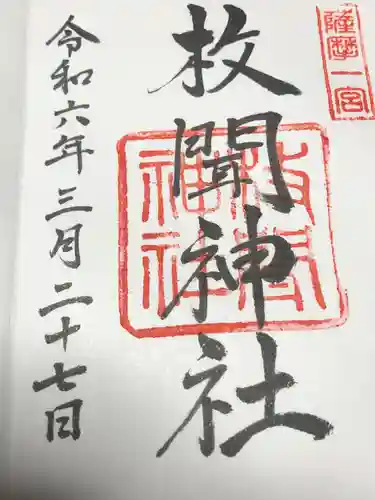 薩摩一宮
枚聞神社
枚聞神社
令和六年三月二十七日